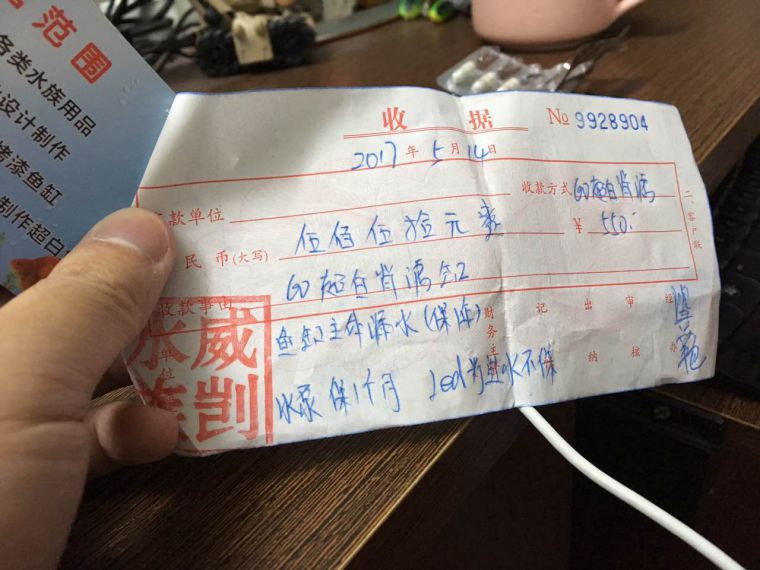 范围
各类水族用品
设计制作
烤漆鱼缸
制作超白
收据
No 9928904
2017年5月14日
款单位
收款方式 60超白背滤
民币(大写) 伍佰伍拾元整
¥ 550.-
收款事由 60超白背滤缸
二、客户联
鱼缸主命漏水(保修)
水泵保1个月 Led为进水不保
单位
财务主
记
出纳
审核
经办
威凯水族